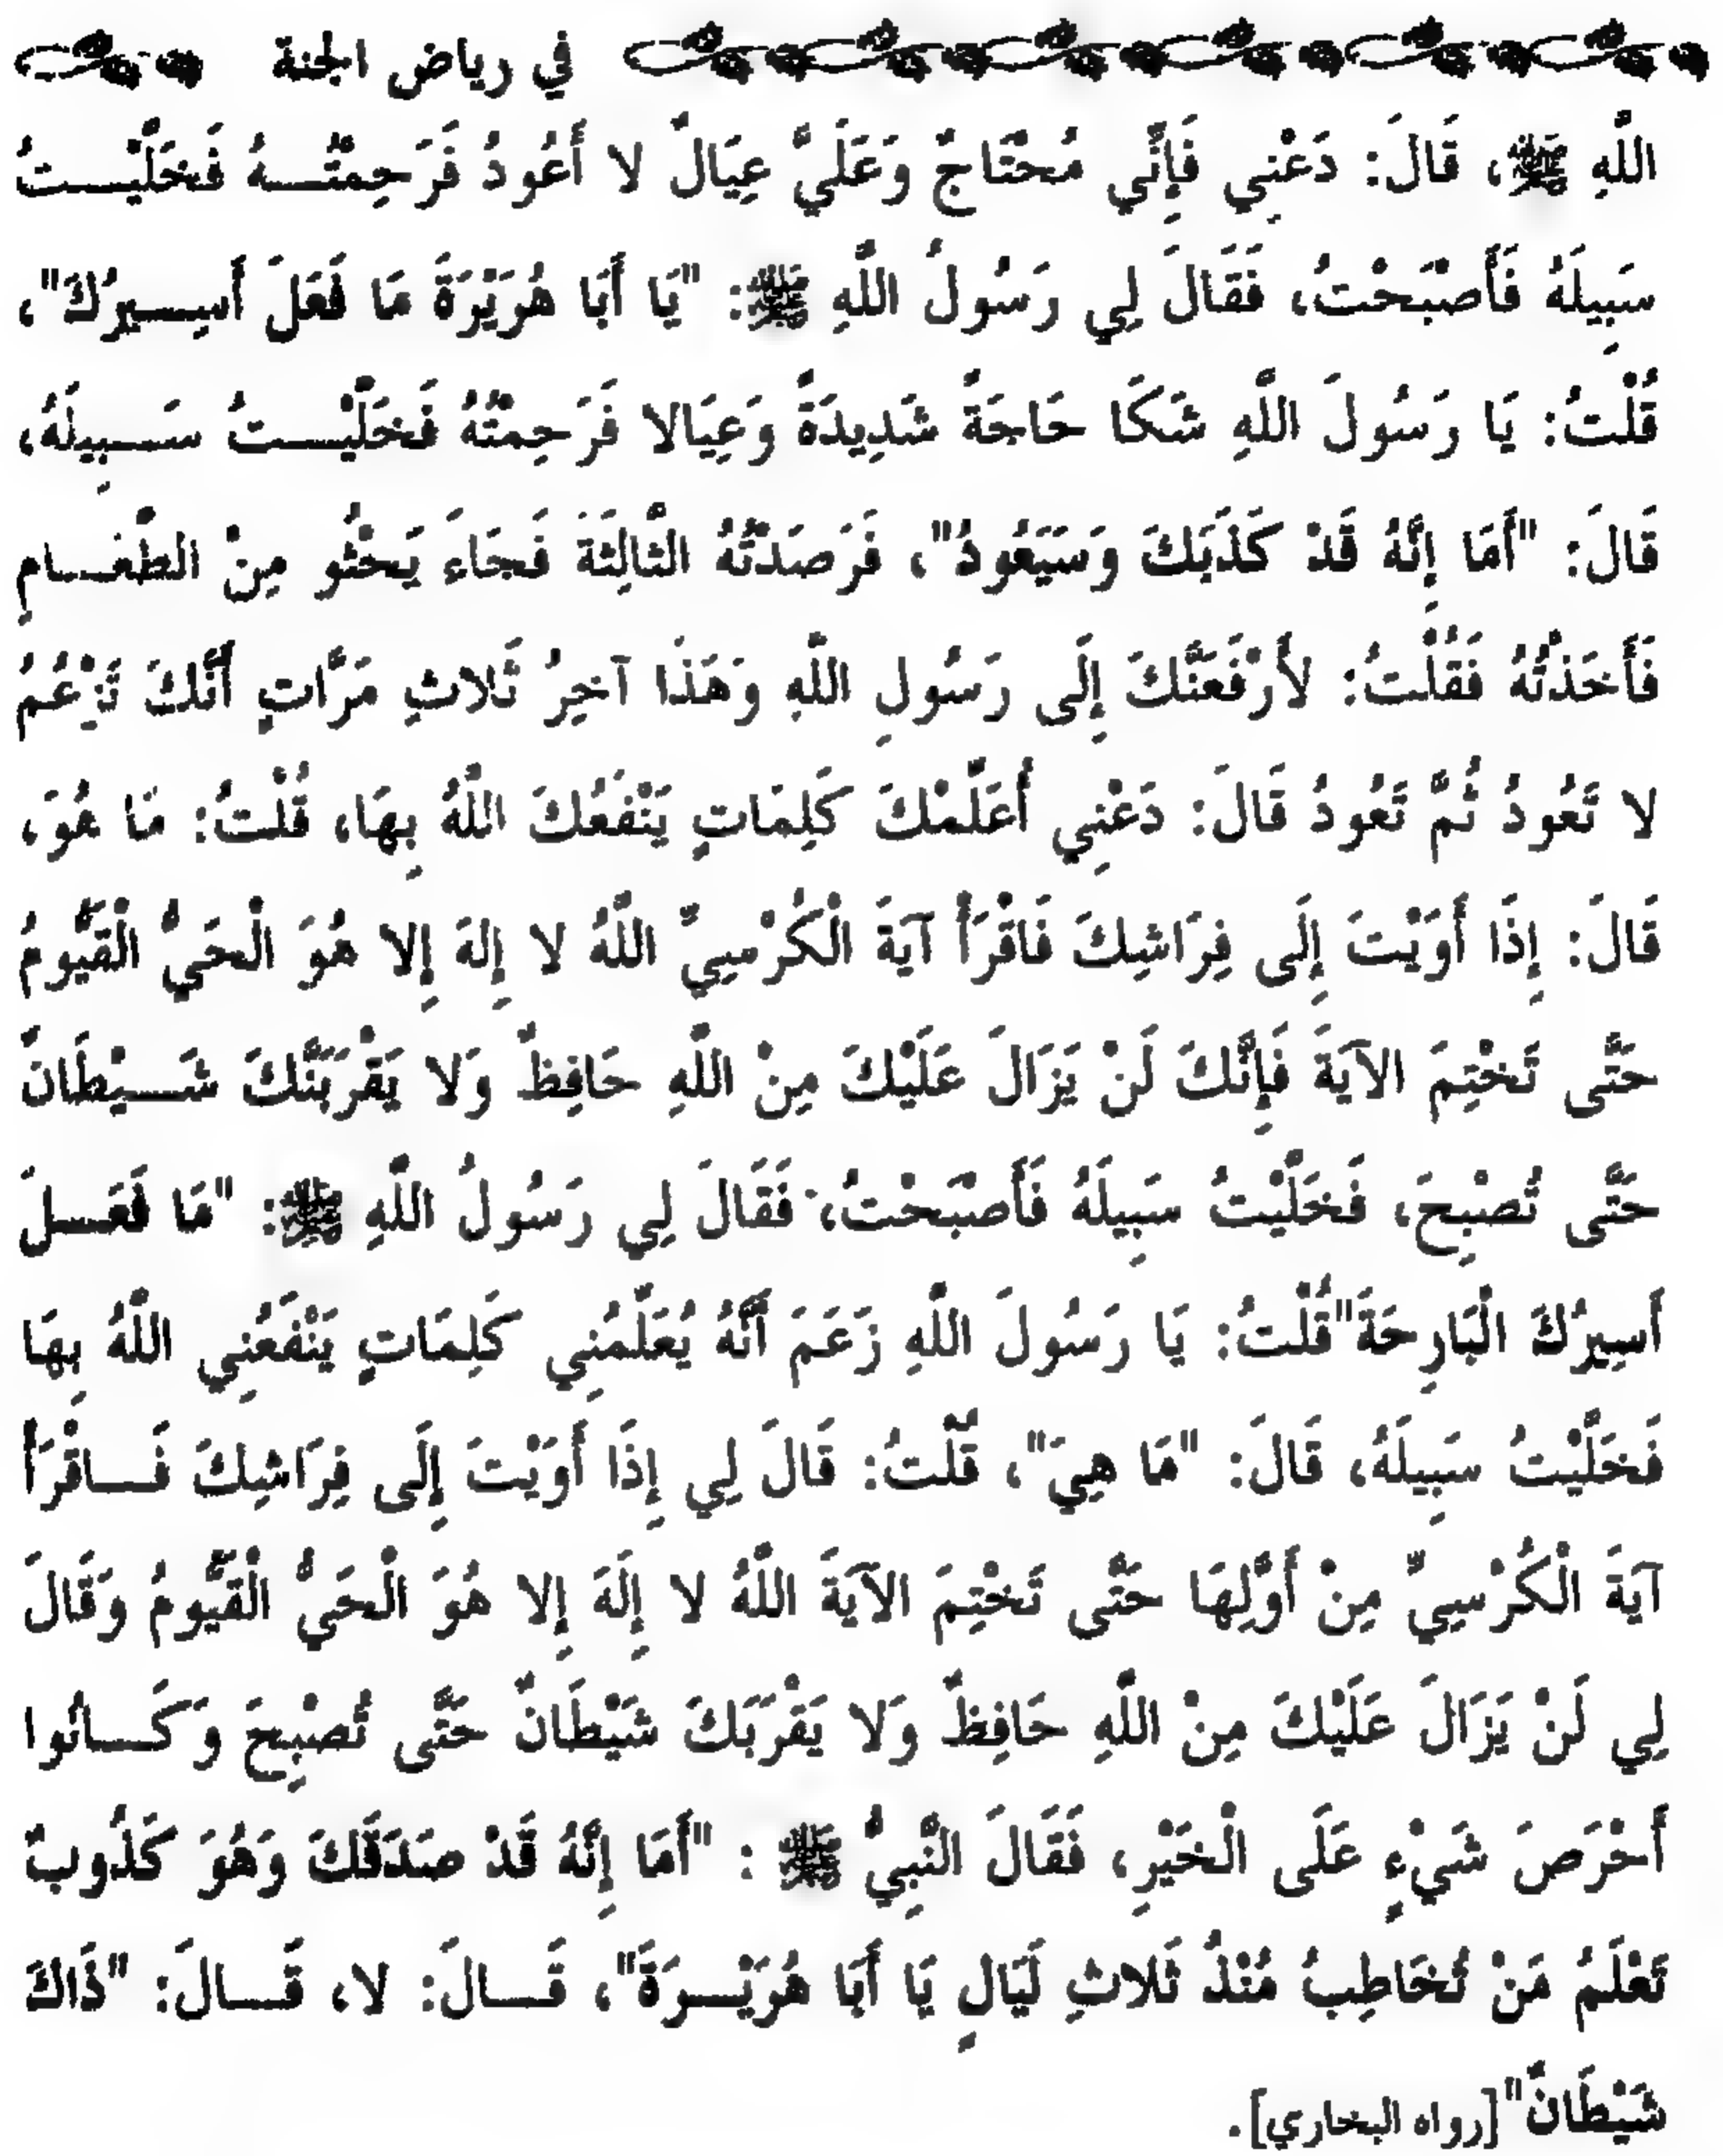 في رياض الجنة
اللَّهِ ﷺ، قَالَ: دَعْنِي فَإِنِّي مُحْتَاجٌ وَعَلَيَّ عِيَالٌ لا أَعُودُ فَرَحِمْتُـــهُ فَخَلَّيْـــتُ
سَبِيلَهُ فَأَصْبَحْتُ، فَقَالَ لِي رَسُولُ اللَّهِ ﷺ: "يَا أَبَا هُرَيْرَةَ مَا فَعَلَ أَسِـــيرُكَ"،
قُلْتُ: يَا رَسُولَ اللَّهِ شَكَا حَاجَةً شَدِيدَةً وَعِيَالا فَرَحِمْتُهُ فَخَلَّيْـــتُ سَـــبِيلَهُ،
قَالَ: "أَمَا إِنَّهُ قَدْ كَذَبَكَ وَسَيَعُودُ"، فَرَصَدْتُهُ الثَّالِثَةَ فَجَاءَ يَحْثُو مِنْ الطَّعَـــامِ
فَأَخَذْتُهُ فَقُلْتُ: لأَرْفَعَنَّكَ إِلَى رَسُولِ اللَّهِ وَهَذَا آخِرُ ثَلاثِ مَرَّاتٍ أَنَّكَ تَزْعُمُ
لا تَعُودُ ثُمَّ تَعُودُ قَالَ: دَعْنِي أُعَلِّمْكَ كَلِمَاتٍ يَنْفَعُكَ اللَّهُ بِهَا، قُلْتُ: مَا هُوَ،
قَالَ: إِذَا أَوَيْتَ إِلَى فِرَاشِكَ فَاقْرَأْ آيَةَ الْكُرْسِيِّ اللَّهُ لا إِلهَ إِلا هُوَ الْحَيُّ الْقَيُّومُ
حَتَّى تَخْتِمَ الآيَةَ فَإِنَّكَ لَنْ يَزَالَ عَلَيْكَ مِنْ اللَّهِ حَافِظٌ وَلا يَقْرَبَنَّكَ شَـــيْطَانٌ
حَتَّى تُصْبِحَ، فَخَلَّيْتُ سَبِيلَهُ فَأَصْبَحْتُ، فَقَالَ لِي رَسُولُ اللَّهِ ﷺ: "مَا فَعَـــلَ
أَسِيرُكَ الْبَارِحَةَ"قُلْتُ: يَا رَسُولَ اللَّهِ زَعَمَ أَنَّهُ يُعَلِّمُنِي كَلِمَاتٍ يَنْفَعُنِي اللَّهُ بِهَا
فَخَلَّيْتُ سَبِيلَهُ، قَالَ: "مَا هِيَ"، قُلْتُ: قَالَ لِي إِذَا أَوَيْتَ إِلَى فِرَاشِكَ فَـــاقْرَأْ
آيَةَ الْكُرْسِيِّ مِنْ أَوَّلِهَا حَتَّى تَخْتِمَ الآيَةَ اللَّهُ لا إِلَهَ إِلا هُوَ الْحَيُّ الْقَيُّومُ وَقَالَ
لِي لَنْ يَزَالَ عَلَيْكَ مِنْ اللَّهِ حَافِظٌ وَلا يَقْرَبَكَ شَيْطَانٌ حَتَّى تُصْبِحَ وَكَـــانُوا
أَحْرَصَ شَيْءٍ عَلَى الْخَيْرِ، فَقَالَ النَّبِيُّ ﷺ : "أَمَا إِنَّهُ قَدْ صَدَقَكَ وَهُوَ كَذُوبٌ
تَعْلَمُ مَنْ تُخَاطِبُ مُنْذُ ثَلاثِ لَيَالٍ يَا أَبَا هُرَيْـــرَةَ"، قَـــالَ: لا، قَـــالَ: "ذَاكَ
شَيْطَانٌ"[رواه البخاري].